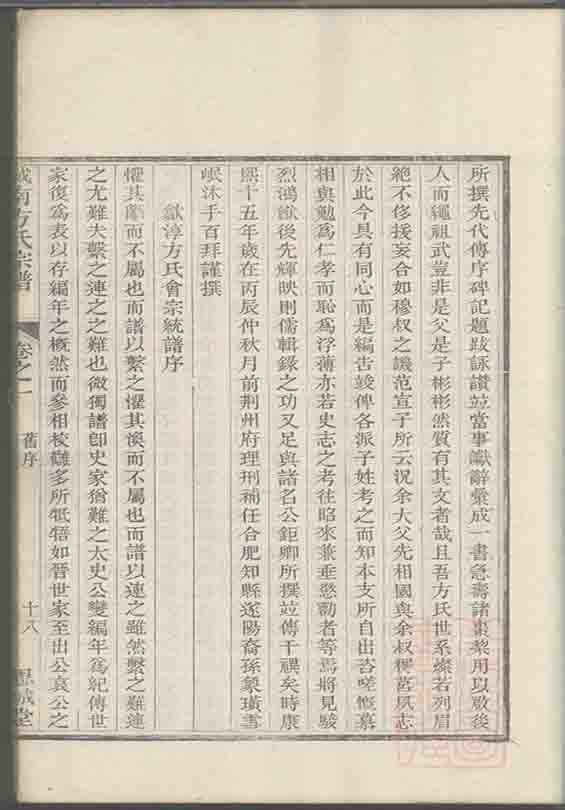 所撰先代傳序碑記題跋詠讚竝當事讞辭彙成一書急壽諸棗棃用以啟後
人而繩祖武豈非是父是子彬彬然質有其文者哉且吾方氏世系燦若列眉
絕不侈援妄合如穆叔之譏范宣子所云況余大父先相國與余叔樛菴夙志
於此今具有同心而是編告竣俾各派子姓考之而知本支所自出咨嗟慨慕
相與勉為仁孝而恥為浮薄亦若史志之考往昭來兼垂懲勸者等焉將見駿
烈鴻猷後先輝映則儒輯錄之功又足與諸名公鉅卿所撰竝傳千禩矣時康
熙十五年歲在丙辰仲秋月前荆州府理刑補任合肥知縣遂陽裔孫象璜雪
岷沐手百拜謹撰
歙淳方氏會宗統譜序
懼其而不屬也而譜以繫之懼其渙而不屬也而譜以連之雖然繫之難連
之尤難夫繫之連之之難也微獨譜卽史家猶難之太史公變編年為紀傳世
家復為表以存編年之槪然而參相校讎多所牴牾如晉世家至出公哀公之
城南方氏宗譜 卷之一 舊序 十八 思誠堂